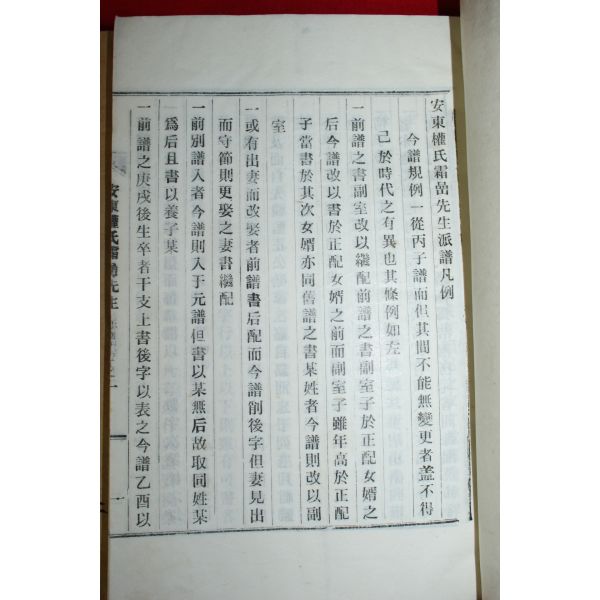 安東權氏霜嵒先生派譜凡例
今譜規例一從丙子譜而但其間不能無變更者盖不得
已於時代之有異也其條例如左
一前譜之書副室改以繼配前譜之書副室子於正配女婿之
后今譜改以書於正配女婿之前而副室子雖年高於正配
子當書於其次女婿亦同舊譜之書某姓者今譜則改以副
室
一或有出妻而改娶者前譜書后配而今譜削後字但妻見出
而守節則更娶之妻書繼配
一前別譜入者今譜則入于元譜但書以某無后故取同姓某
爲后且書以養子某
一前譜之庚戌後生卒者干支上書後字以表之今譜乙酉以
安東權氏霜嵒先生
一